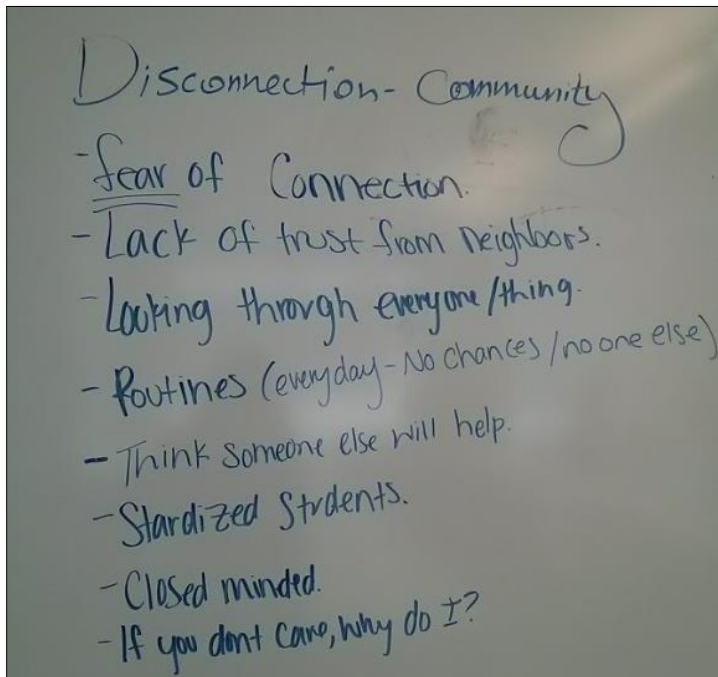 Disconnection - Community
- fear of Connection.
- Lack of trust from neighbors.
- Looking through everyone/thing.
- Routines (everyday - No chances / no one else)
- Think someone else will help.
- Stardized Students.
- Closed minded.
- If you dont care, why do I?